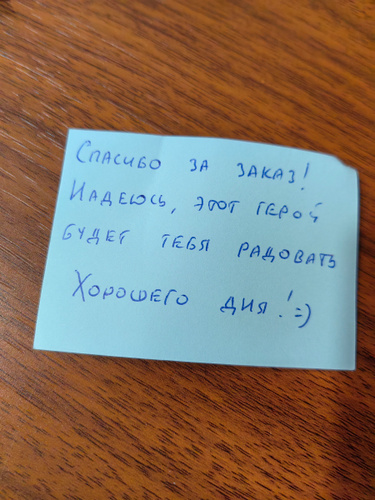 Спасибо за заказ!
Надеюсь, этот герой
будет тебя радовать
Хорошего дня! =)